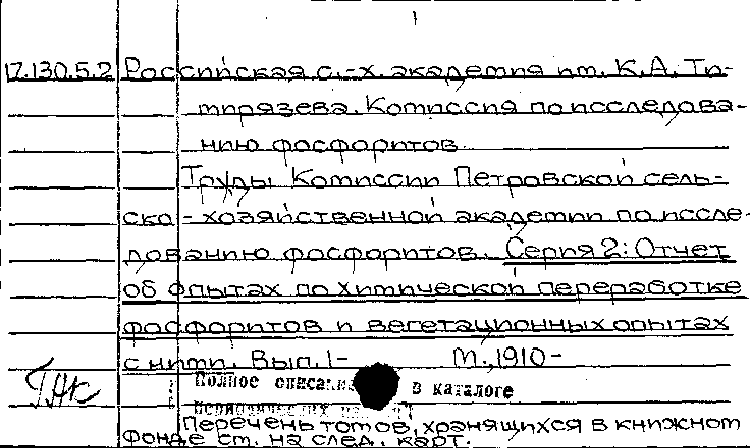 1
17.130.5.2 Российская с.-х. академия им. К.А. Ти-
мирязева. Комиссия по исследова-
нию фосфоритов
Труды Комиссии Петровской сель-
ско-хозяйственной академии по иссле-
дованию фосфоритов. Серия 2: Отчет
об опытах по химической переработке
фосфоритов и вегетационных опытах
с ними. Вып. 1- М., 1910-
Полное описание в каталоге
периодических
Перечень томов, хранящихся в книжном
фонде см. на след. карт.